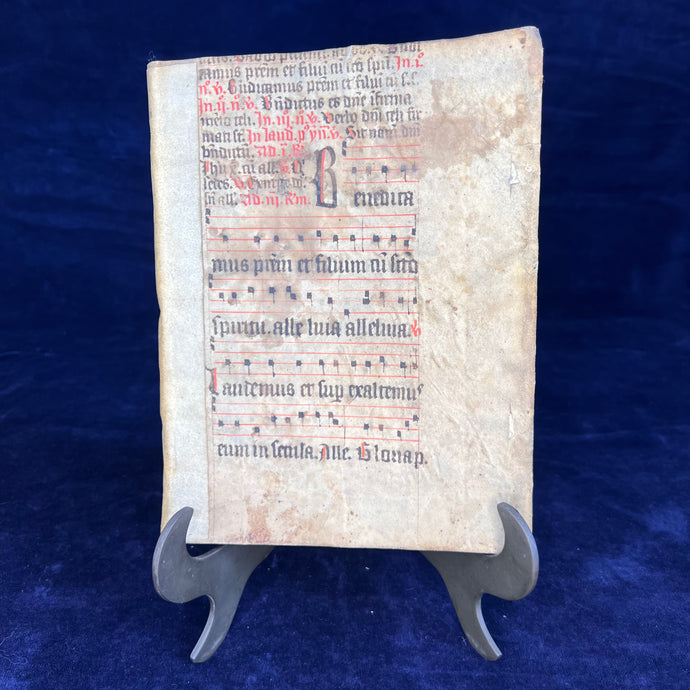 tamus prēm et filiū cū sco spū. In i.
n.° v̄. Bn̄dicamus prēm et filiū cū s.s.
In. ij. n.° v̄. Bn̄dictus es dn̄e i firma
mēto celi. In. iij. n.° v̄. Verbo dn̄i celi fir
mati st̄. In laud. v̄. Sit nom̄ dn̄i
bn̄dictū. Ad. j. R̄
cū all. v̄.
v̄. Exurge
all. Ad. iij. Rm̄. Benedica
mus prēm et filium cū sācto
spiritu. alle luia alleluia. v̄
Laudemus et sup exaltemus
eum in secula. Alle. Gloria p.